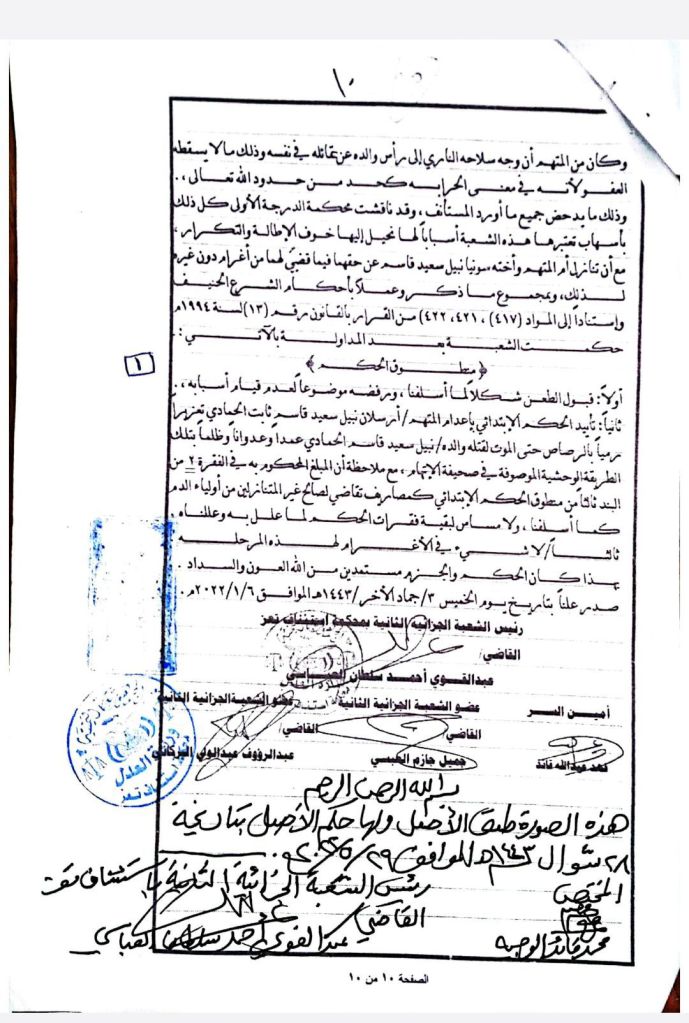 ١٠
وكان من المتهم أن وجه سلاحه الناري إلى رأس والده عن بقائله في نفسه وذلك مالا يسقطه
العفو لأنه في معنى الحرابه كحد من حدود الله تعالى ،.
وذلك ما يدحض جميع ما أورد المستأنف ، وقد ناقشت محكمة الدرجة الأولى كل ذلك
بأسهاب تعتبرها هذه الشعبة أسباباً لها نحيل إليها خوف الإطالة والتكرار ،
مع أن تنازل أم المتهم وأخته سونيا نبيل سعيد قاسم عن حقهما فيما قضي لهما من أغرام دون غيره
لذلك ، وبمجموع ما ذكر وعملاً بأحكام الشرع الحنيف
وإستناداً إلى المواد (٤١٧) ، ٤٢١، ٤٢٢) من القرار بالقانون رقم (١٣) لسنة ١٩٩٤م
حكمت الشعبة بعد المداولة بالآتي :.
﴿ منطوق الحكم ﴾
١
أولاً : قبول الطعن شكلاً لما أسلفنا ، ورفضه موضوعاً لعدم قيام أسبابه ،.
ثانياً : تأييد الحكم الإبتدائي بإعدام المتهم / أرسلان نبيل سعيد قاسم ثابت الحمادي تعزيراً
رمياً بالرصاص حتى الموت لقتله والده / نبيل سعيد قاسم الحمادي عمداً وعدواناً وظلماً بتلك
الطريقة الوحشية الموصوفة في صحيفة الإتهام ، مع ملاحظة أن المبلغ المحكوم به في الفقرة ٢ من
البند ثالثاً من منطوق الحكم الإبتدائي كمصاريف تقاضي لصالح غير المتنازلين من أولياء الدم
كما أسلفنا ، ولا مساس لبقية فقرات الحكم لما علل به وعللناه ،
ثالثاً / لا شيء في الأغرام لهذه المرحله
بهذا كان الحكم والجزم مستمدين من الله العون والسداد .
صدر علناً بتاريخ يوم الخميس ٣/جماد الآخر/١٤٤٣هـ الموافق ٢٠٢٢/١/٦م .
رئيس الشعبة الجزائية الثانية بمحكمة استئناف تعز
القاضي/
عبدالقوي أحمد سلطان العباسي
أمين السر عضو الشعبة الجزائية الثانية عضو الشعبة الجزائية الثانية
القاضي/ القاضي/
فهد عبدالله قائد جميل حازم الخبسي عبدالرؤوف عبدالولي البركاني
بسم الله الرحمن الرحيم
هذه الصورة طبق الأصل ولها حكم الأصل بتاريخه
٢٨ شوال ١٤٤٣هـ الموافق ٢٩/٥/٢٠٢٢م
المختص رئيس الشعبة الجزائية الثانية باستئناف تعز
القاضي
محمد قائد الوجيه عبدالقوي أحمد سلطان العباسي
الصفحة ١٠ من ١٠